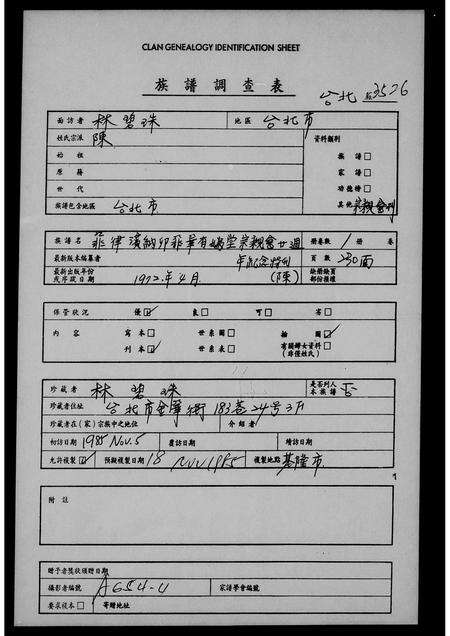 CLAN GENEALOGY IDENTIFICATION SHEET
族譜調查表
台北 3526
面訪者 林碧珠 地區 台北市
姓氏宗派 陳 資料類別
始祖 族譜□
原籍 家譜□
世代 功德榜□
族譜包含地區 台北市 其他 宗親會刊
族譜名 菲律濱納卯菲華有媯堂宗親會廿週 冊卷數 1 冊 卷
最新版本編纂者 年紀念特刊 頁數 230面
最新出版年份或序跋日期 1972年4月 (陳) 缺冊缺頁部份種種
保管狀況 優☑ 良□ 可□ 劣□
內容 寫本□ 世系圖□ 插圖☑
刊本☑ 世系表□ 有關婦女資料□(非僅姓氏)
珍藏者 林碧珠 是否列入本族譜 否
珍藏者住址 台北市金華街183巷24号3F
珍藏者在(家)宗族中之地位 介紹者
初訪日期 1985 Nov.5 覆訪日期 續訪日期
允許複製☑ 預擬複製日期 18 Nov 1985 複製地點 基隆市
附註
贈予者獎狀頒贈日期
攝影者編號 A654-4 家譜學會編號
要求複本□ 寄贈地址